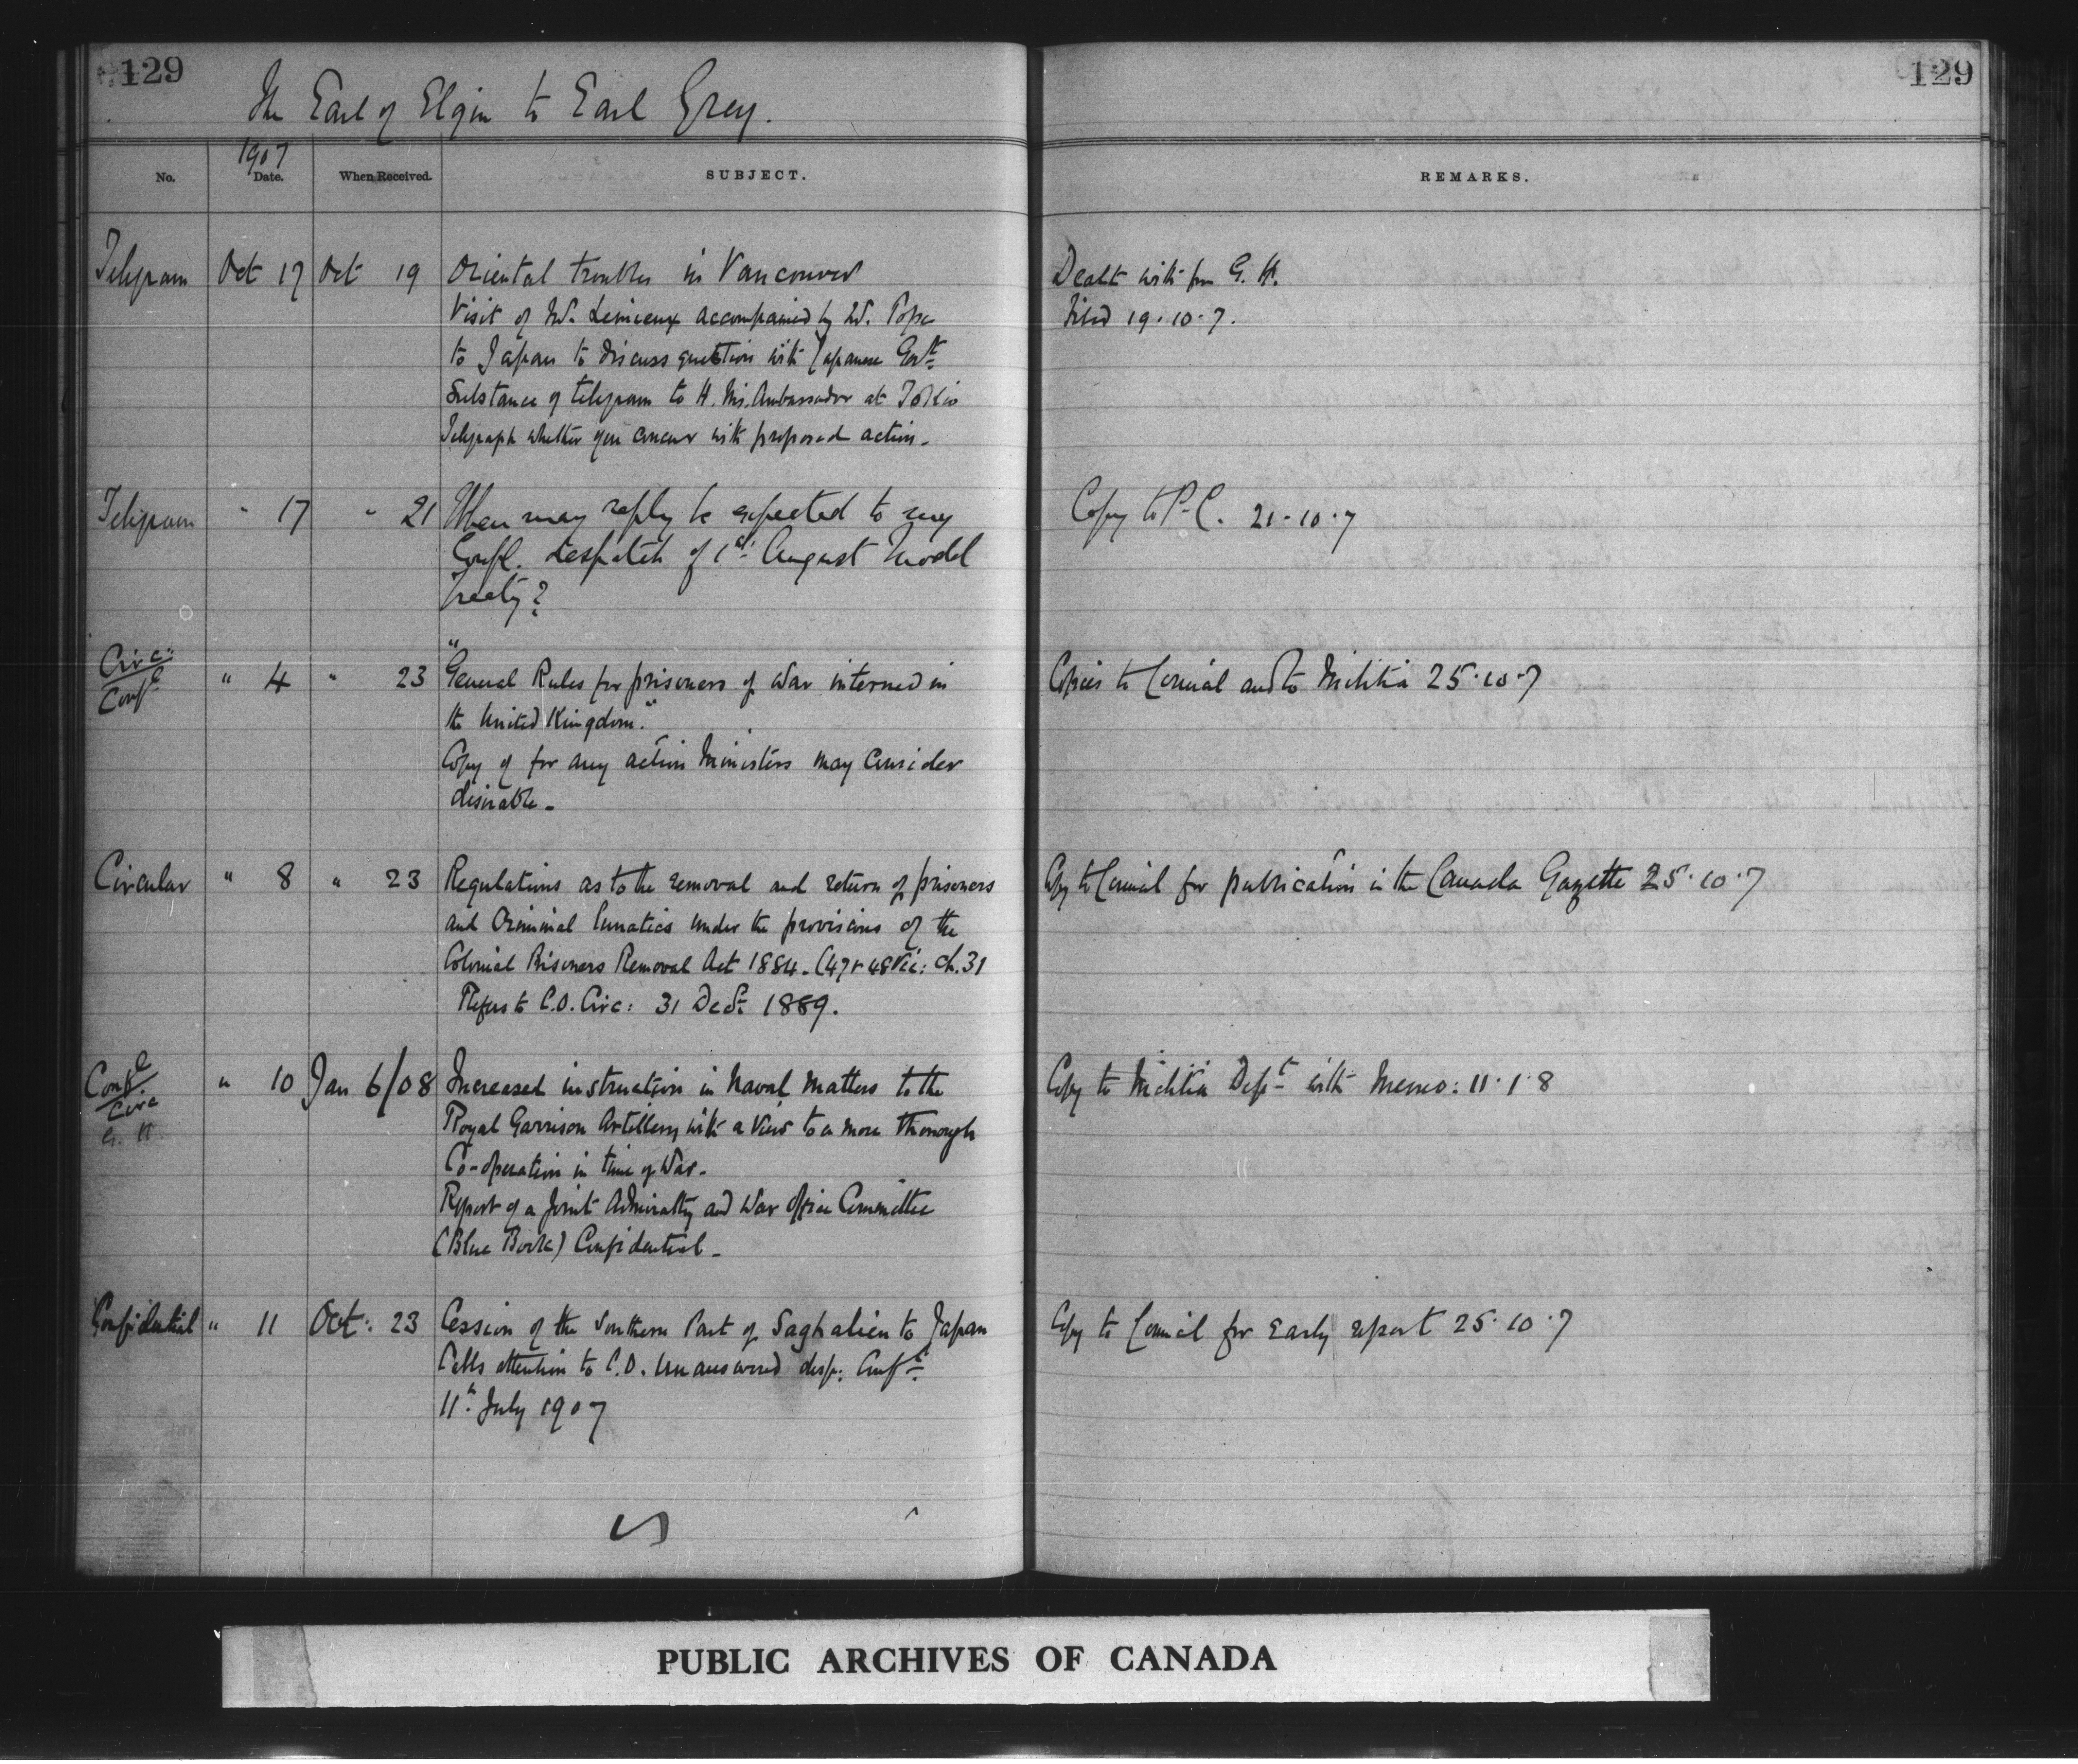 129
129
The Earl of Elgin to Earl Grey.
No.
1907
Date.
When Received.
SUBJECT.
REMARKS.
Telegram Oct 17 Oct 19 Oriental troubles in Vancouver
Visit of Mr. Lemieux accompanied by Mr. Pope
to Japan to discuss question with Japanese Govt
Substance of telegram to H. M's. Ambassador at Tokio
Telegraph whether you concur with proposed action.
Dealt with for G. H.
Filed 19.10.7.
Telegram " 17 " 21 When may reply be expected to my
Confl. despatch of 1st August Model
Treaty?
Copy to P.C. 21.10.7
Circ:
Confl " 4 " 23 "General Rules for prisoners of War interned in
the United Kingdom."
Copy of for any action Ministers may consider
desirable.
Copies to Council and to Militia 25.10.7
Circular " 8 " 23 Regulations as to the removal and return of prisoners
and Criminal lunatics under the provisions of the
Colonial Prisoners Removal Act 1884. (47 & 48 Vic: Ch. 31
Refers to C.O. Circ: 31 Decr 1889.
Copy to Council for publication in the Canada Gazette 25.10.7
Confl
Circ
G. H. " 10 Jan 6/08 Increased instruction in Naval Matters to the
Royal Garrison Artillery with a view to a more thorough
Co-operation in time of War.
Report of a Joint Admiralty and War Office Committee
(Blue Book) Confidential.
Copy to Militia Dept with Memo: 11.1.8
Confidential " 11 Oct: 23 Cession of the Southern Part of Saghalien to Japan
Calls attention to C.O. unanswered desp: Confl
11th July 1907
Copy to Council for Early report 25.10.7
PUBLIC ARCHIVES OF CANADA